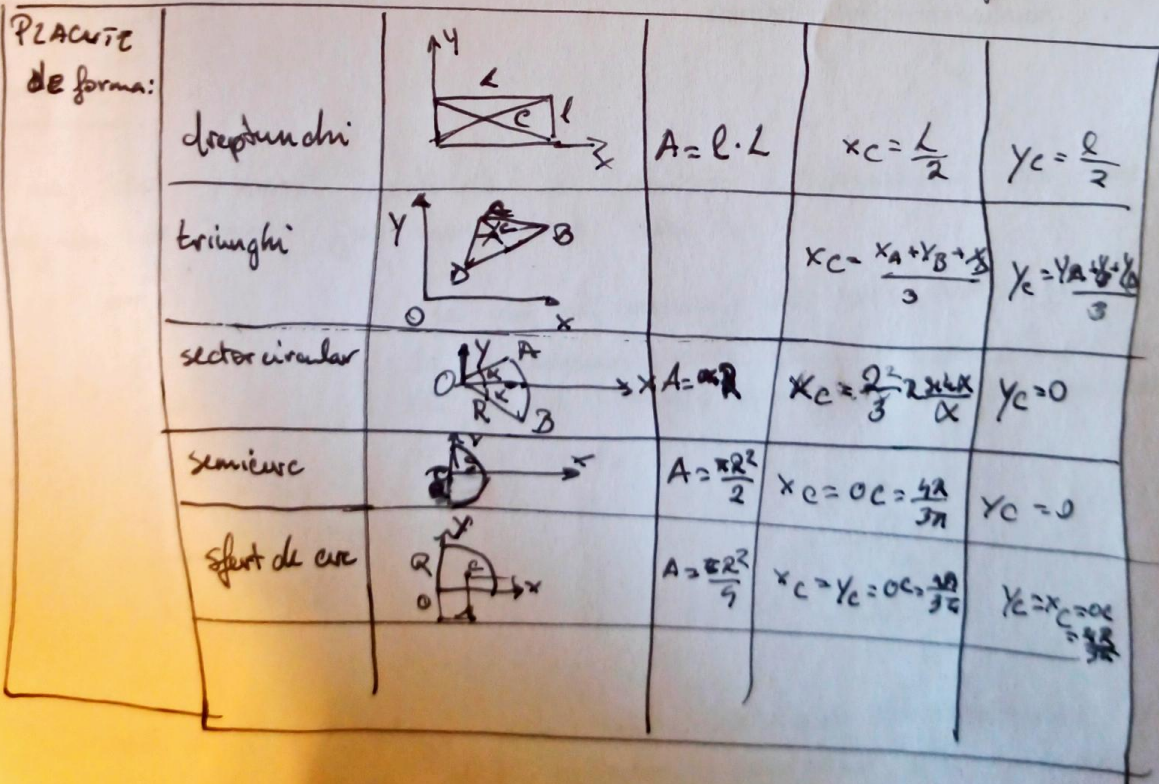 PLACUTE
de forma:
dreptunchi
Y
L
C
l
X
A = l · L
xC = L/2
yC = l/2
triunghi
Y
B
O
X
xC = xA + xB + xD / 3
yC = yA + yB + yD / 3
sector circular
Y
A
O
α
α
R
B
X
yC = 0
semicerc
X
A = πR²/2
xC = OC = 4R/3π
yC = 0
sfert de cerc
Y
R
C
O
X
xC = yC = OC = 4R/3π
yC = xC = OC
= 4R/3π